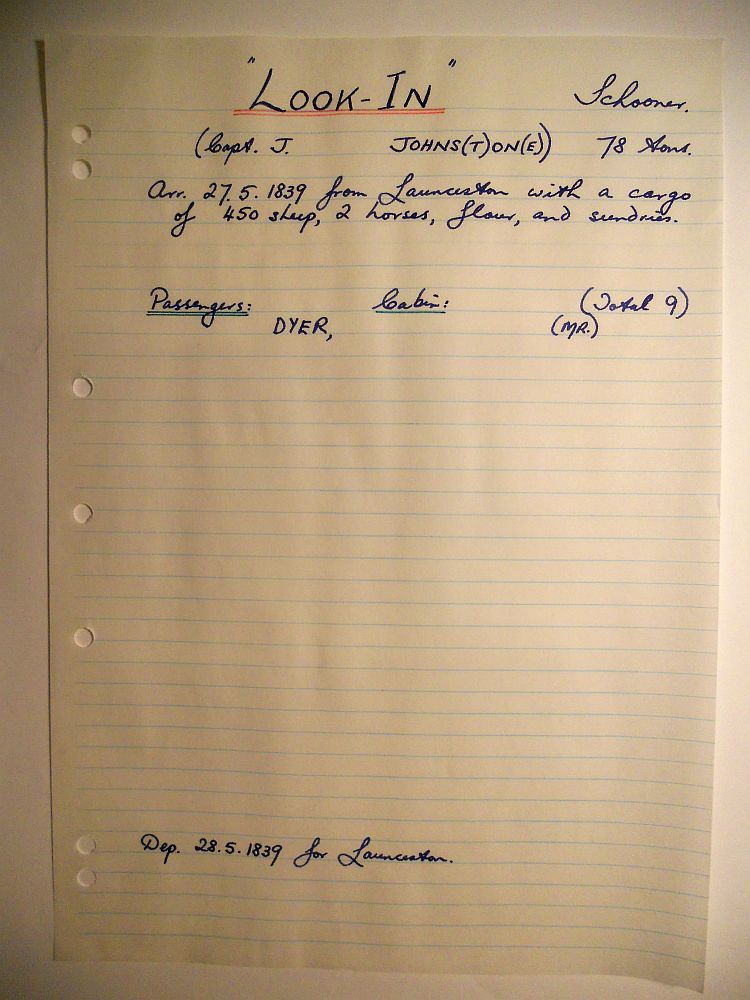 "LOOK-IN" Schooner.
(Capt. J. JOHNS(T)ON(E)) 78 tons.
Arr. 27.5.1839 from Launceston with a cargo
of 450 sheep, 2 horses, flour, and sundries.
Passengers: Cabin: (Total 9)
DYER, (MR.)
Dep. 28.5.1839 for Launceston.